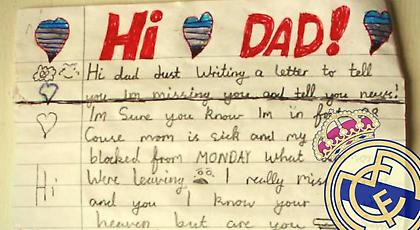 Hi DAD!
Hi dad dust Writing a letter to tell
you im missing you and tell you news!
I'm Sure you know Im in
Couse mom is sick and my
blocked from MONDAY what
Hi
Were leaving I really
and you I know your
heaven but are you